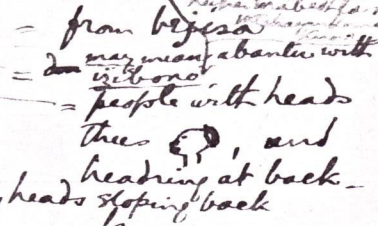 = from begesa
= may mean abantu with
izibono
= people with heads
thus , and
headring at back -
heads sloping back